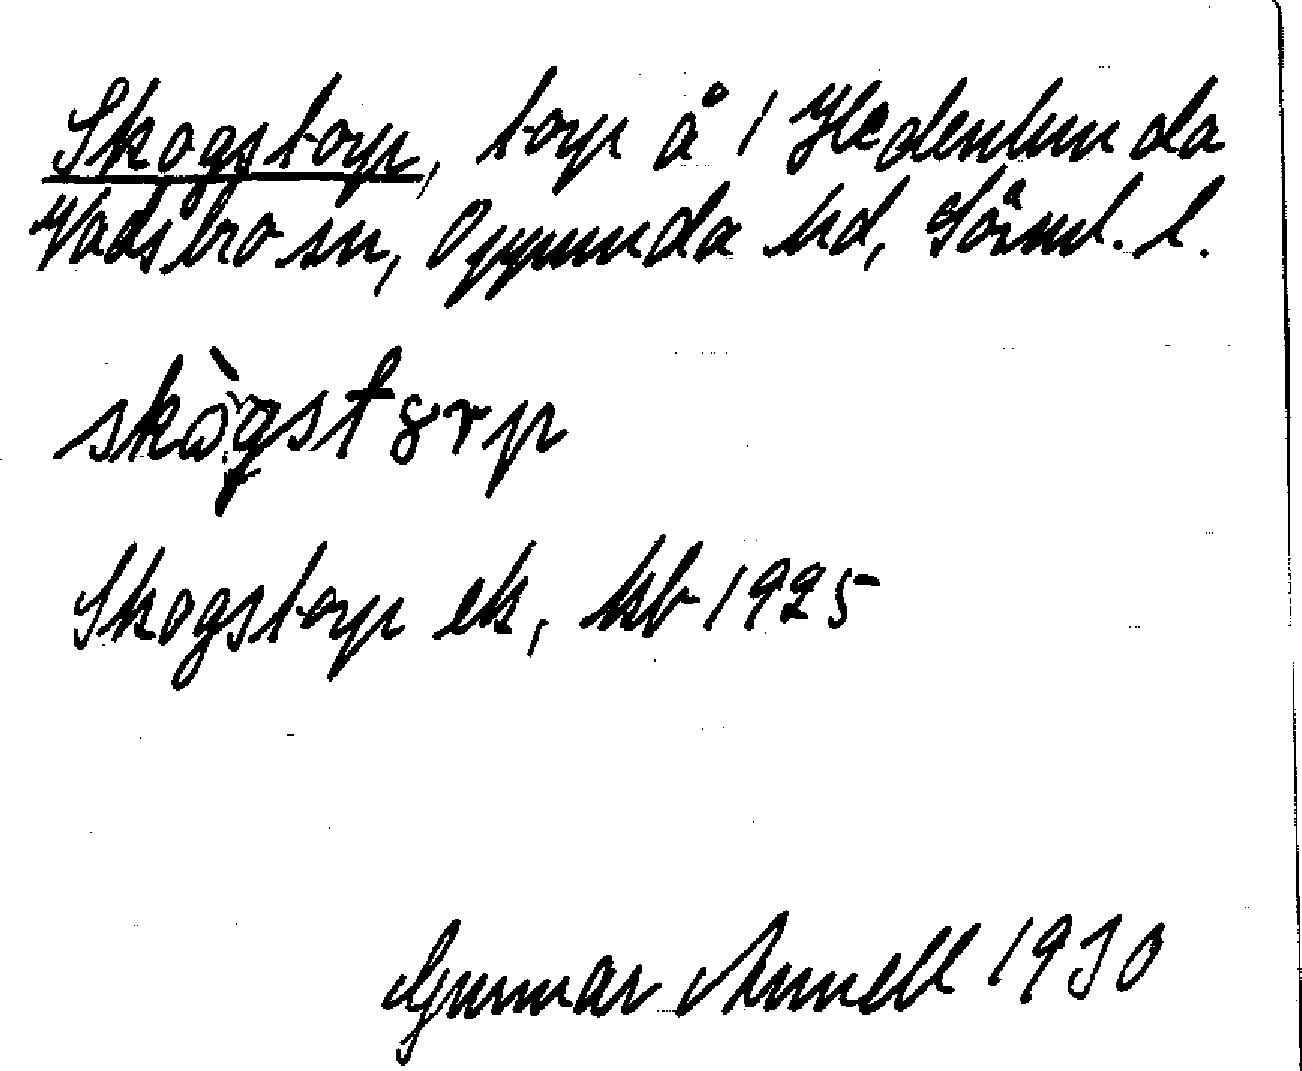 Skogstorp, torp å 1 Hedenlunda
Vadsbro sn, Oppunda hd, Sörml. l.
skògstȣrp
Skogstorp ek, kb 1925
Gunnar Annell 1930